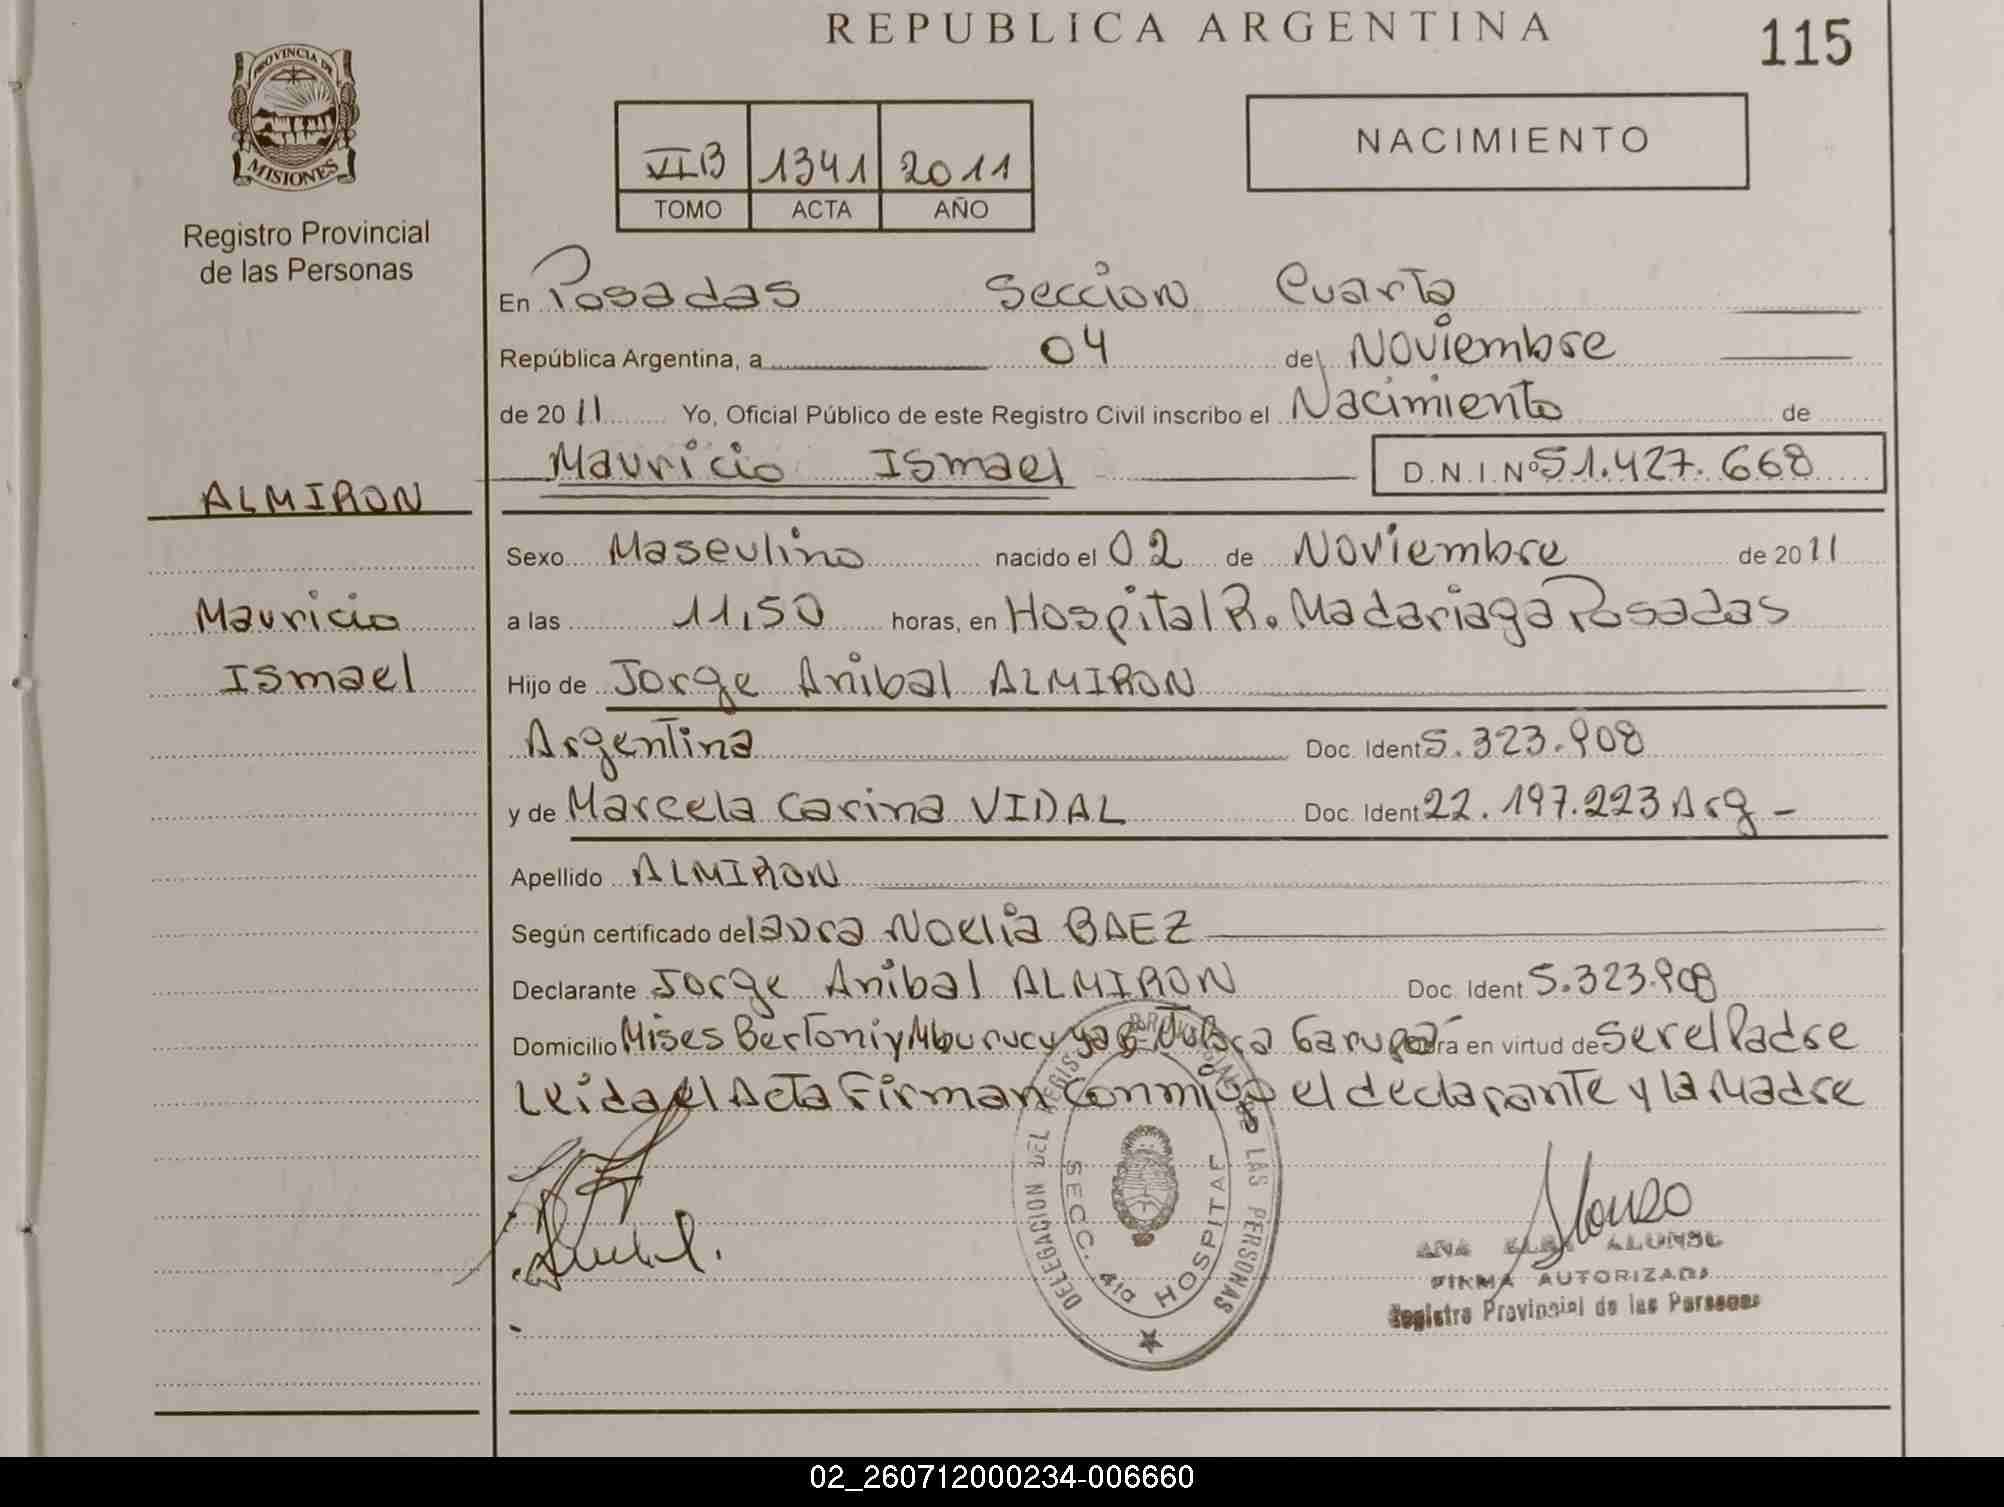 REPUBLICA ARGENTINA
115
PROVINCIA DE
MISIONES
Registro Provincial
de las Personas
VI B 1341 2011
TOMO ACTA AÑO
NACIMIENTO
En Posadas Seccion Cuarta
República Argentina, a 04 de Noviembre
de 2011 Yo, Oficial Público de este Registro Civil inscribo el Nacimiento de
Mauricio Ismael D.N.I. Nº 51.427.668
ALMIRON
Mauricio
Ismael
Sexo Masculino nacido el 02 de Noviembre de 2011
a las 11,50 horas, en Hospital R. Madariaga Posadas
Hijo de Jorge Anibal ALMIRON
Argentina Doc. Ident 5.323.908
y de Marcela Carina VIDAL Doc. Ident 22.197.223 Arg -
Apellido ALMIRON
Según certificado de laura Noelia BAEZ
Declarante Jorge Anibal ALMIRON Doc. Ident 5.323.908
Domicilio Mises Bertoni y Mburucuya Garupá en virtud de Ser el Padre
Leida el Acta Firman Conmigo el declarante y la Madre
DELEGACION DEL REGISTRO PROVINCIAL DE LAS PERSONAS
SECC. 4ta HOSPITAL
Alonso
ANA ALONSO
FIRMA AUTORIZADA
Registro Provincial de las Personas
02_260712000234-006660